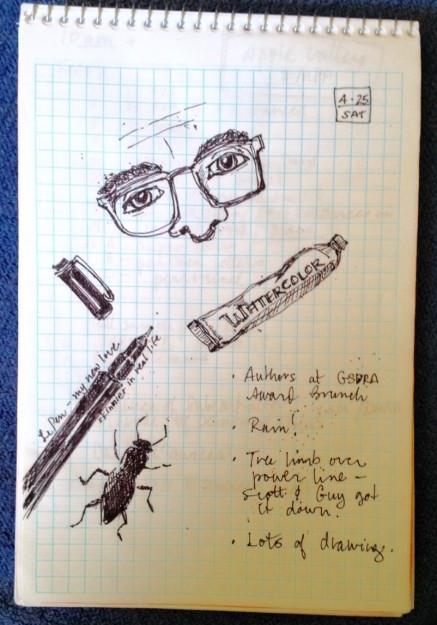 4·25
SAT
WATERCOLOR
Le Pen - my new love
skinnier in real life
· Authors at
Award Brunch
· Rain!
· Tree limb over
power line -
Scott & Guy got
it down.
· Lots of drawing.